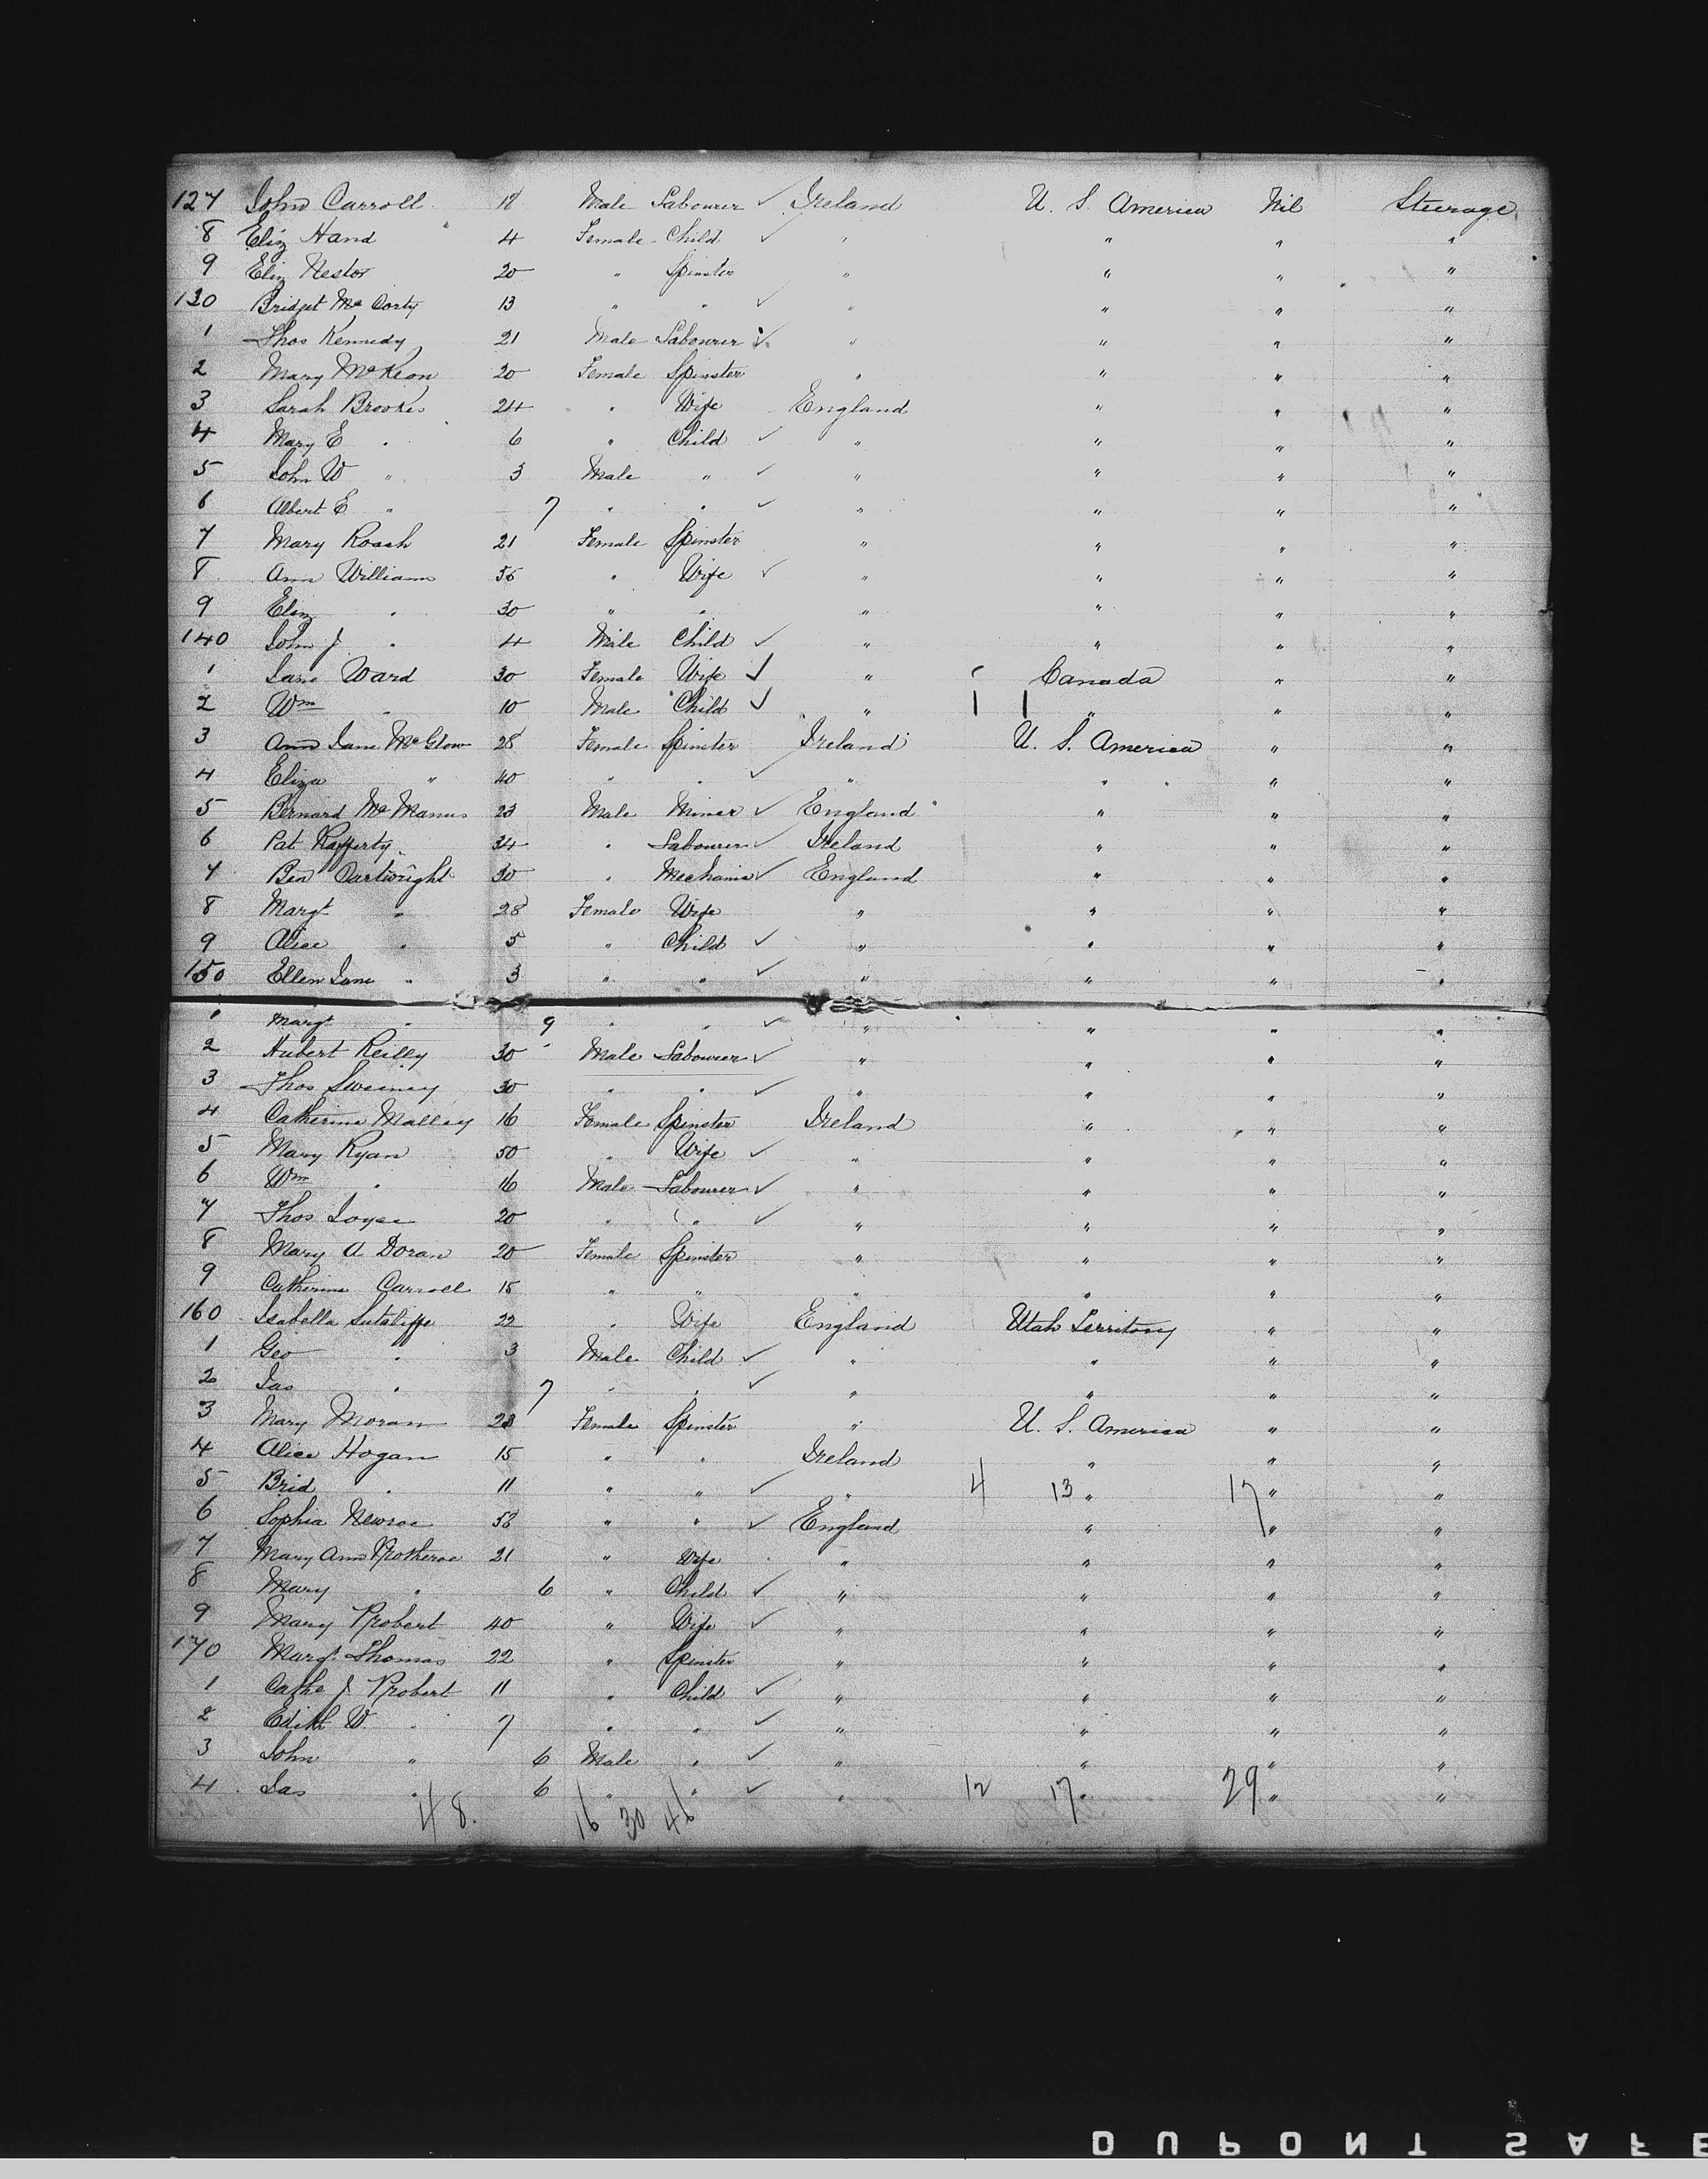 127 John Carroll 18 Male Labourer ✓ Ireland U. S. America Nil Steerage
8 Eliz Hand 4 Female Child ✓ " " " "
9 Eliz Nestor 20 " Spinster " " " "
130 Bridget McCorty 13 " " ✓ " " " "
1 Thos Kennedy 21 Male Labourer ✓ " " " "
2 Mary McKeon 20 Female Spinster " " " "
3 Sarah Brookes 24 " Wife England " " "
4 Mary E " 6 " Child ✓ " " " "
5 John W " 3 Male " ✓ " " " "
6 Albert E " 7 " " ✓ " " " "
7 Mary Roach 21 Female Spinster " " " "
8 Ann Williams 56 " Wife ✓ " " " "
9 Eliz " 30 " " " " " "
140 John J " 4 Male Child ✓ " " " "
1 Jane Ward 30 Female Wife ✓ " Canada " "
2 Wm " 10 Male Child ✓ " 1 1 " " "
3 Ann Jane McGlow 28 Female Spinster Ireland U. S. America " "
4 Eliza " 40 " " ✓ " " " "
5 Bernard McManus 23 Male Miner ✓ England " " "
6 Pat Rafferty 34 " Labourer ✓ Ireland " " "
7 Ben Cartwright 30 " Mechanic ✓ England " " "
8 Margt " 28 Female Wife " " " "
9 Alice " 5 " Child ✓ " " " "
150 Ellen Jane " 3 " " ✓ " " " "
1 Margt " 9 " " ✓ " " " "
2 Hubert Reilly 30 Male Labourer ✓ " " " "
3 Thos Sweeney 30 " " ✓ " " " "
4 Catherine Malley 16 Female Spinster Ireland " " "
5 Mary Ryan 50 " Wife ✓ " " " "
6 Wm " 16 Male Labourer ✓ " " " "
7 Thos Joyce 20 " " ✓ " " " "
8 Mary A Doran 20 Female Spinster " " " "
9 Catherine Carroll 15 " " " " " "
160 Isabella Sutcliffe 22 " Wife England Utah Territory " "
1 Geo " 3 Male Child ✓ " " " "
2 Jas " 7 " " ✓ " " " "
3 Mary Moran 23 Female Spinster " U. S. America " "
4 Alice Hogan 15 " " Ireland " " "
5 Brid " 11 " " ✓ " 4 13 " 17 " "
6 Sophia Newroe 58 " " ✓ England " " "
7 Mary Ann Protheroe 21 " Wife " " " "
8 Mary " 6 " Child ✓ " " " "
9 Mary Probert 40 " Wife ✓ " " " "
170 Margt Thomas 22 " Spinster " " " "
1 Cathe J Probert 11 " Child ✓ " " " "
2 Edith W. " 7 " " ✓ " " " "
3 John " 6 Male " ✓ " " " "
4 Jas " 6 " " ✓ " 12 17 " 29 " "
48. 16 30 46
DUPONT SAFE